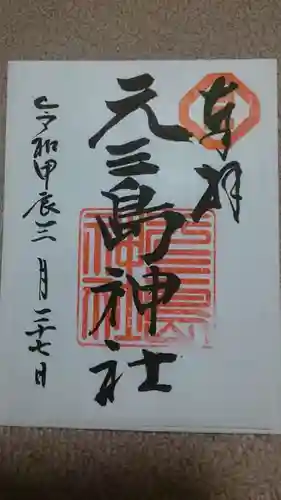 奉拝
元三島神社
令和甲辰三月二十七日